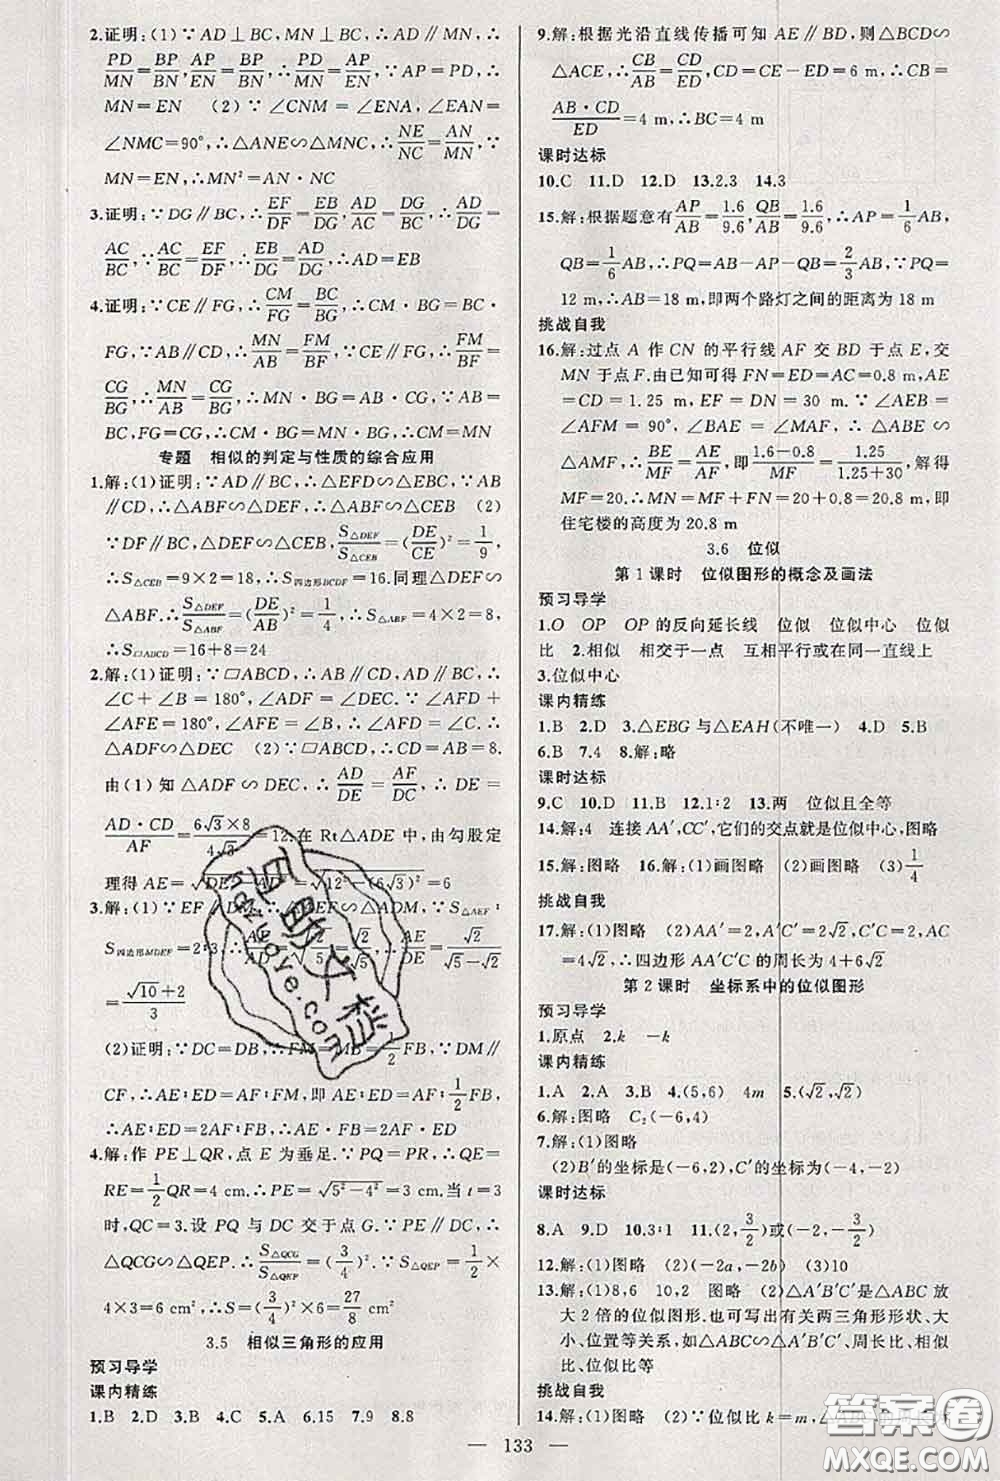 2.证明:(1)∵AD⊥BC,MN⊥BC,∴AD∥MN,∴
PD/MN=BP/BN,AP/EN=BP/BN,∴PD/MN=AP/EN,∵AP=PD,∴
MN=EN (2)∵∠CNM=∠ENA,∠EAN=
∠NMC=90°,∴△ANE∽△MNC,∴NE/NC=AN/MN,∵
MN=EN,∴MN²=AN·NC
3.证明:∵DG∥BC,∴EF/DF=EB/DG,AD/AC=DG/BC,∴AD/DG=
AC/BC,∵AC/BC=EF/DF,∴EB/DG=AD/DG,∴AD=EB
4.证明:∵CE∥FG,∴CM/FG=BC/BG,∴CM·BG=BC·
FG,∵AB∥CD,∴MN/AB=FM/BF,∵CE∥FG,∴FM/BF=
CG/BG,∴MN/AB=CG/BG,∴MN·BG=AB·CG,∵AB=
BC,FG=CG,∴CM·BG=MN·BG,∴CM=MN
专题 相似的判定与性质的综合应用
1.解:(1)证明:∵AD∥BC,∴△EFD∽△EBC,∵AB
∥CD,∴△ABF∽△DEF,∴△ABF∽△CEB (2)
∵DF∥BC,△DEF∽△CEB,∴S△DEF/S△CEB=(DE/CE)²=1/9,
∴S△CEB=9×2=18,∴S四边形BCDF=16.同理△DEF∽
△ABF.∴S△DEF/S△ABF=(DE/AB)²=1/4,∴S△ABF=4×2=8,
∴S□ABCD=16+8=24
2.解:(1)证明:∵□ABCD,∴AB∥CD,AD∥BC,∴
∠C+∠B=180°,∠ADF=∠DEC.∵∠AFD+
∠AFE=180°,∠AFE=∠B,∴∠AFD=∠C.∴
△ADF∽△DEC (2)∵□ABCD,∴CD=AB=8.
由(1)知△ADF∽DEC,∴AD/DE=AF/DC,∴DE=
AD·CD/AF=6√3×8/4√3=12.在Rt△ADE中,由勾股定
理得AE=√DE²-AD²=√12²-(6√3)²=6
3.解:(1)∵EF∥DM,∴△AEF∽△ADM,∵S△AEF:
S四边形MDEF=2:3,∴AE/AD=√2/√5,∴AE/ED=√2/√5-√2=
√10+2/3
(2)证明:∵DC=DB,∴FM=MB=1/2FB,∵DM∥
CF,∴AE:ED=AF:FM,即AE:ED=AF:1/2FB,
∴AE:ED=2AF:FB,∴AE·FB=2AF·ED
4.解:作PE⊥QR,点E为垂足.∵PQ=PR,∴QE=
RE=1/2QR=4 cm.∴PE=√5²-4²=3 cm.当t=3
时,QC=3.设PQ与DC交于点G.∵PE∥DC,∴
△QCG∽△QEP.∴S△QCG/S△QEP=(3/4)².∵S△QEP=1/2×
4×3=6 cm²,∴S=(3/4)²×6=27/8 cm²
3.5 相似三角形的应用
预习导学
课内精练
1.B 2.D 3.B 4.C 5.A 6.15 7.9 8.8
9.解:根据光沿直线传播可知AE∥BD,则△BCD∽
△ACE,∴CB/AB=CD/ED,∵CD=ED=6 m,∴CB=
AB·CD/ED=4 m,∴BC=4 m
课时达标
10.C 11.D 12.D 13.2.3 14.3
15.解:根据题意有AP/AB=1.6/9.6,QB/AB=1.6/9.6,∴AP=1/6AB,
QB=1/6AB,∴PQ=AB-AP-QB=2/3AB,∵PQ=
12 m,∴AB=18 m,即两个路灯之间的距离为18 m
挑战自我
16.解:过点A作CN的平行线AF交BD于点E,交
MN于点F.由已知可得FN=ED=AC=0.8 m,AE
=CD=1.25 m,EF=DN=30 m.∵∠AEB=
∠AFM=90°,∠BAE=∠MAF,∴△ABE∽
△AMF,∴BE/MF=AE/AF,即1.6-0.8/MF=1.25/1.25+30,解得
MF=20.∴MN=MF+FN=20+0.8=20.8 m.即
住宅楼的高度为20.8 m
3.6 位似
第1课时 位似图形的概念及画法
预习导学
1.O OP OP的反向延长线 位似 位似中心 位似
比 2.相似 相交于一点 互相平行或在同一直线上
3.位似中心
课内精练
1.B 2.D 3.△EBG与△EAH(不唯一) 4.D 5.B
6.B 7.4 8.解:略
课时达标
9.C 10.D 11.D 12.1:2 13.两 位似且全等
14.解:4 连接AA′,CC′,它们的交点就是位似中心,图略
15.解:图略 16.解:(1)画图略 (2)画图略 (3)1/4
挑战自我
17.解:(1)图略 (2)AA′=2,A′C′=2√2=C′C,AC
=4√2,∴四边形AA′C′C的周长为4+6√2
第2课时 坐标系中的位似图形
预习导学
1.原点 2.k -k
课内精练
1.A 2.A 3.B 4.(5,6) 4m 5.(√2,√2)
6.解:图略 C₂(-6,4)
7.解:(1)图略
(2)B′的坐标是(-6,2),C′的坐标为(-4,-2)
课时达标
8.A 9.D 10.3:1 11.(2,3/2)或(-2,-3/2)
12.解:(1)图略 (2)(-2a,-2b) (3)10
13.解:(1)8,6 10,2 图略 (2)△A′B′C′是△ABC放
大2倍的位似图形.也可写出有关两三角形形状、大
小、位置等关系,如△ABC∽△A′B′C′、周长比、相似
比、位似比等
挑战自我
14.解:(1)图略 (2)∵位似比k=m,△
— 133 —
答案圈
MXQE.COM